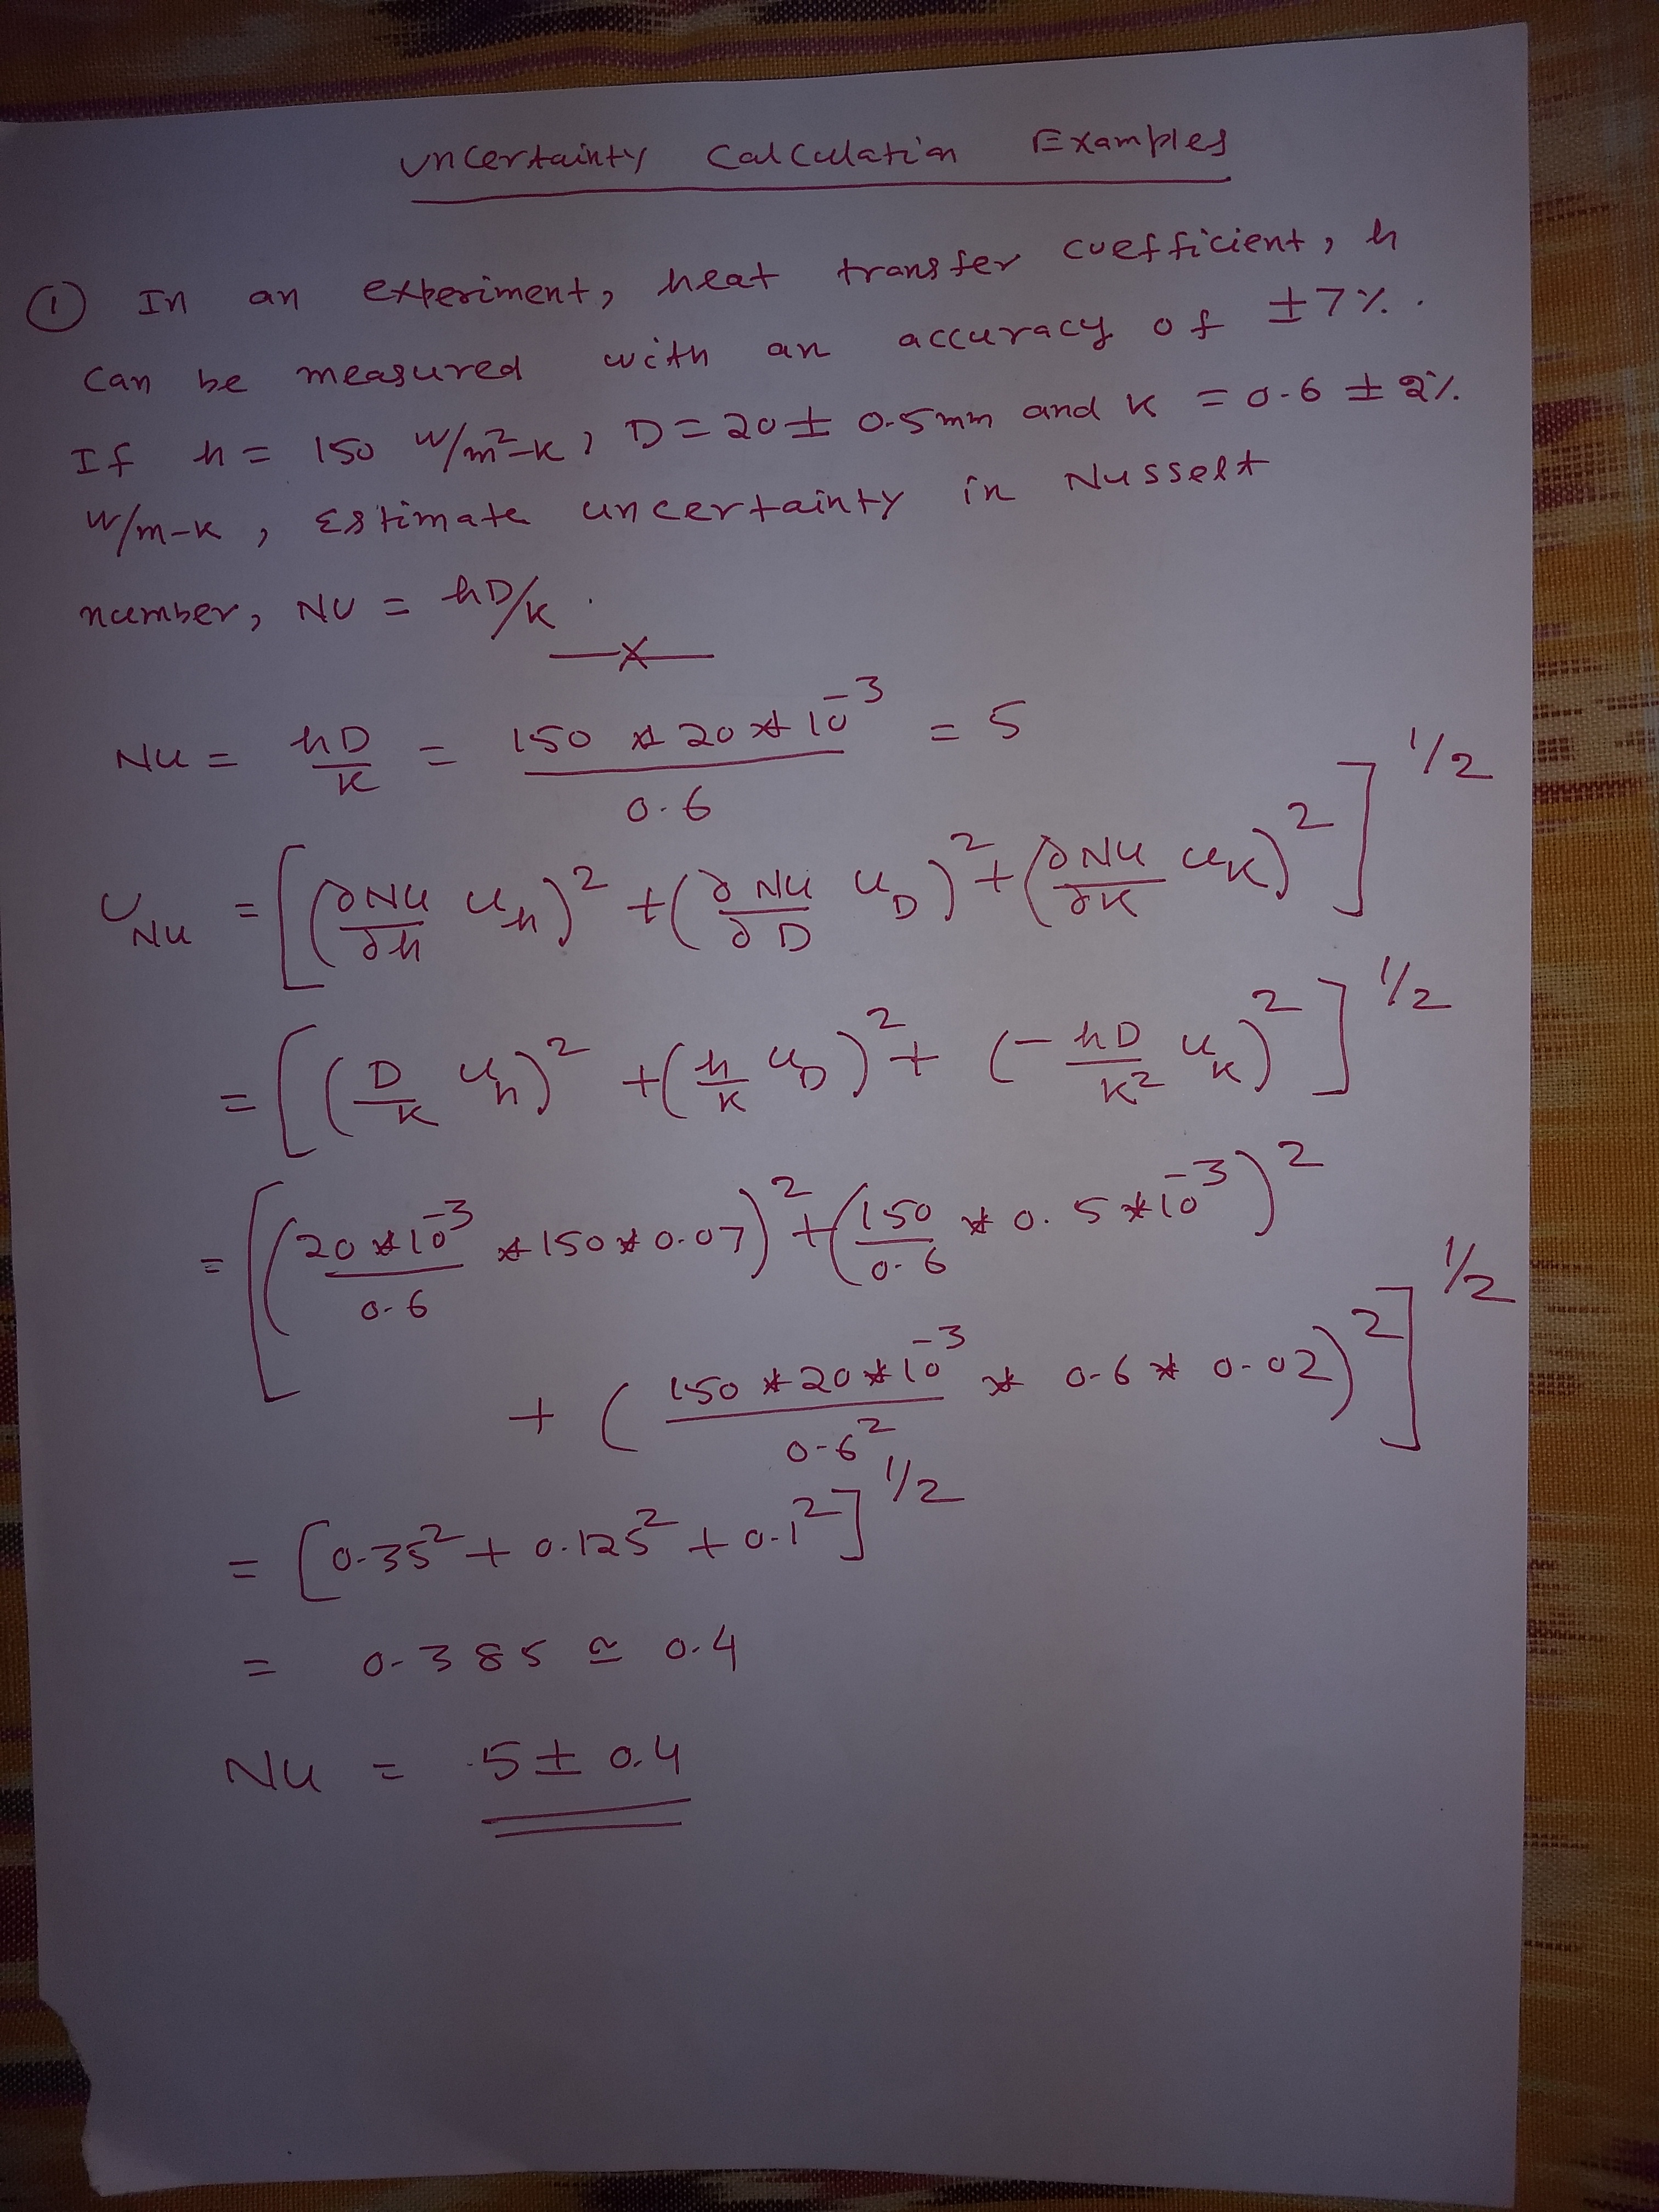 Uncertainty Calculation Examples
① In an experiment, heat transfer coefficient, h
can be measured with an accuracy of ±7%.
If h = 150 W/m²-K, D = 20 ± 0.5mm and K = 0.6 ± 2%
W/m-K, Estimate uncertainty in Nusselt
number, NU = hD/K.
—x—
Nu = hD/K = (150 * 20 * 10⁻³)/0.6 = 5
U_Nu = [(∂Nu/∂h u_h)² + (∂Nu/∂D u_D)² + (∂Nu/∂K u_K)²]^1/2
= [(D/K u_h)² + (h/K u_D)² + (-hD/K² u_K)²]^1/2
= [((20 * 10⁻³)/0.6 * 150 * 0.07)² + (150/0.6 * 0.5 * 10⁻³)²
+ ((150 * 20 * 10⁻³)/0.6² * 0.6 * 0.02)²]^1/2
= [0.35² + 0.125² + 0.1²]^1/2
= 0.385 ≃ 0.4
Nu = 5 ± 0.4